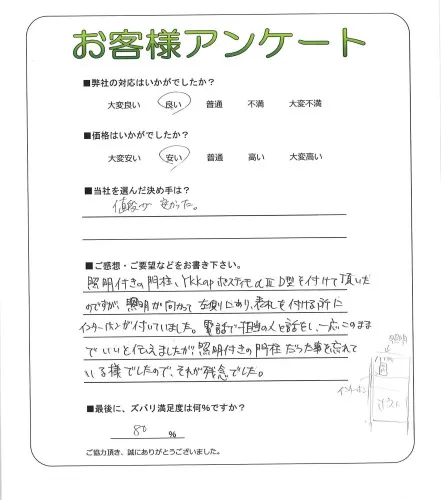 お客様アンケート
■弊社の対応はいかがでしたか？
大変良い　良い　普通　不満　大変不満
■価格はいかがでしたか？
大変安い　安い　普通　高い　大変高い
■当社を選んだ決め手は？
値段が安かった。
■ご感想・ご要望などをお書き下さい。
照明付きの門柱、YKKap ポスティモαⅡD型を付けて頂いた
のですが、照明が向かって左側にあり、表札を付ける所に
インターホンが付いていました。電話で担当の人と話をし、一応このまま
でいいと伝えましたが、照明付きの門柱だった事を忘れて
いる様でしたので、それが残念でした。
照明
インターホン
ポスト
■最後に、ズバリ満足度は何％ですか？
80 ％
ご協力頂き、誠にありがとうございました。